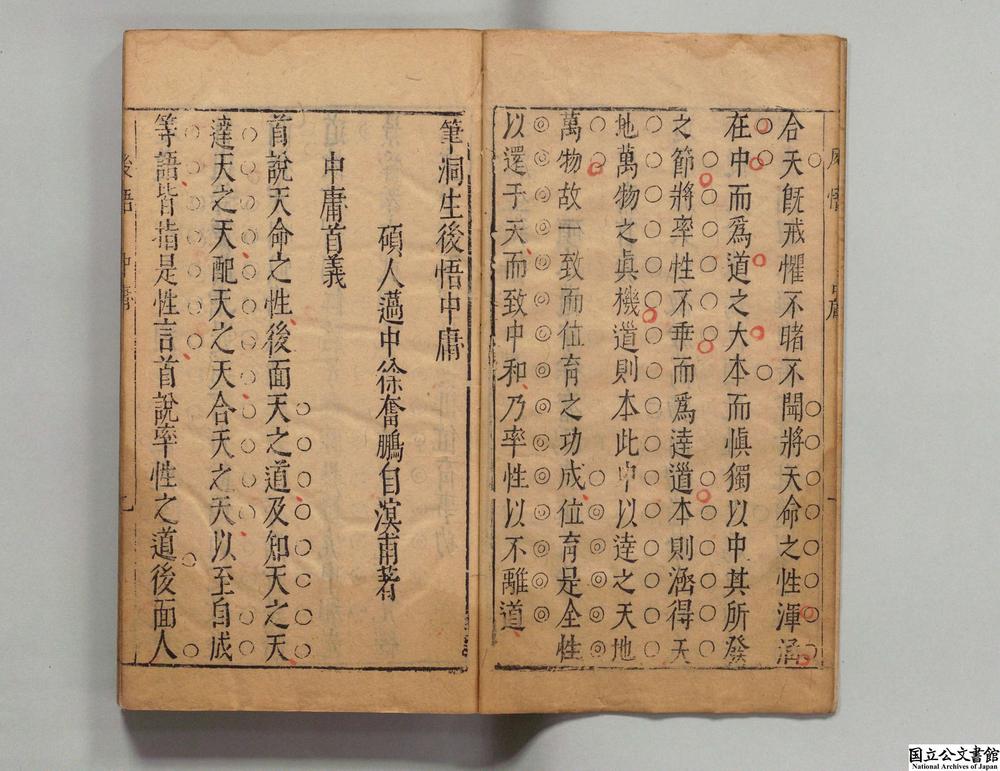 合天旣戒懼不睹不聞將天命之性渾涵
在中而爲道之大本而愼獨以中其所發
之節將率性不乖而爲達道本則涵得天
地萬物之眞機道則本此中以達之天地
萬物故一致而位育之功成位育是全性
以還于天而致中和乃率性以不離道
筆洞生後悟中庸
碩人薖中徐奮鵬自溟甫著
中庸首義
首說天命之性後面天之道及知天之天
達天之天配天之天合天之天以至自成
等語皆指是性言首說率性之道後面人
後悟 中庸
九
国立公文書館
National Archives of Japan